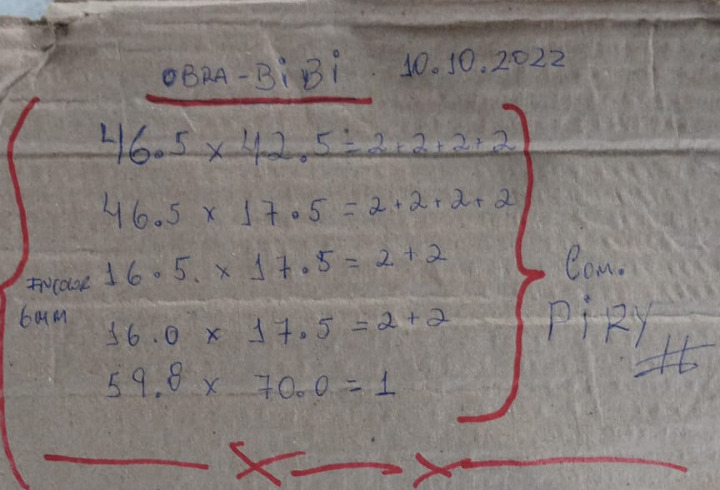 OBRA-BiBi. 10.10.2022
46.5 x 42.5=2+2+2+2
46.5 x 17.5=2+2+2+2
16.5. x 17.5=2+2
16.0 x 17.5=2+2
59.8 x 70.0=1
INCOLOR
6MM
Com.
PiRY